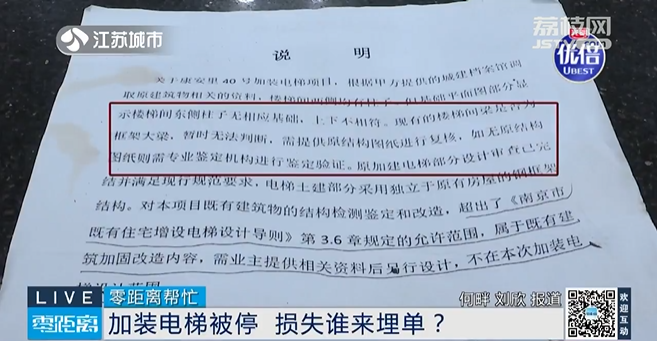 江苏城市
荔枝网
JSTV.COM
优倍
UBEST
说 明
关于康安里40号加装电梯项目，根据甲方提供的城建档案馆调
取原建筑物相关的资料，楼梯间两侧均有柱子。但基础平面图部分显
示楼梯间东侧柱子无相应基础，上下不相符。现有的楼梯间梁是否为
框架大梁，暂时无法判断，需提供原结构图纸进行复核，如无原结构
图纸则需专业鉴定机构进行鉴定验证。原加建电梯部分设计审查已完
结并满足现行规范要求，电梯土建部分采用独立于原有房屋的钢框架
结构。对本项目既有建筑物的结构检测鉴定和改造，超出了《南京市
既有住宅增设电梯设计导则》第3.6章规定的允许范围，属于既有建
筑加固改造内容，需业主提供相关资料后另行设计，不在本次加装电
梯设计范围
LIVE
零距离帮忙
何畔 刘欣 报道
零距离
加装电梯被停 损失谁来埋单？
欢迎互动